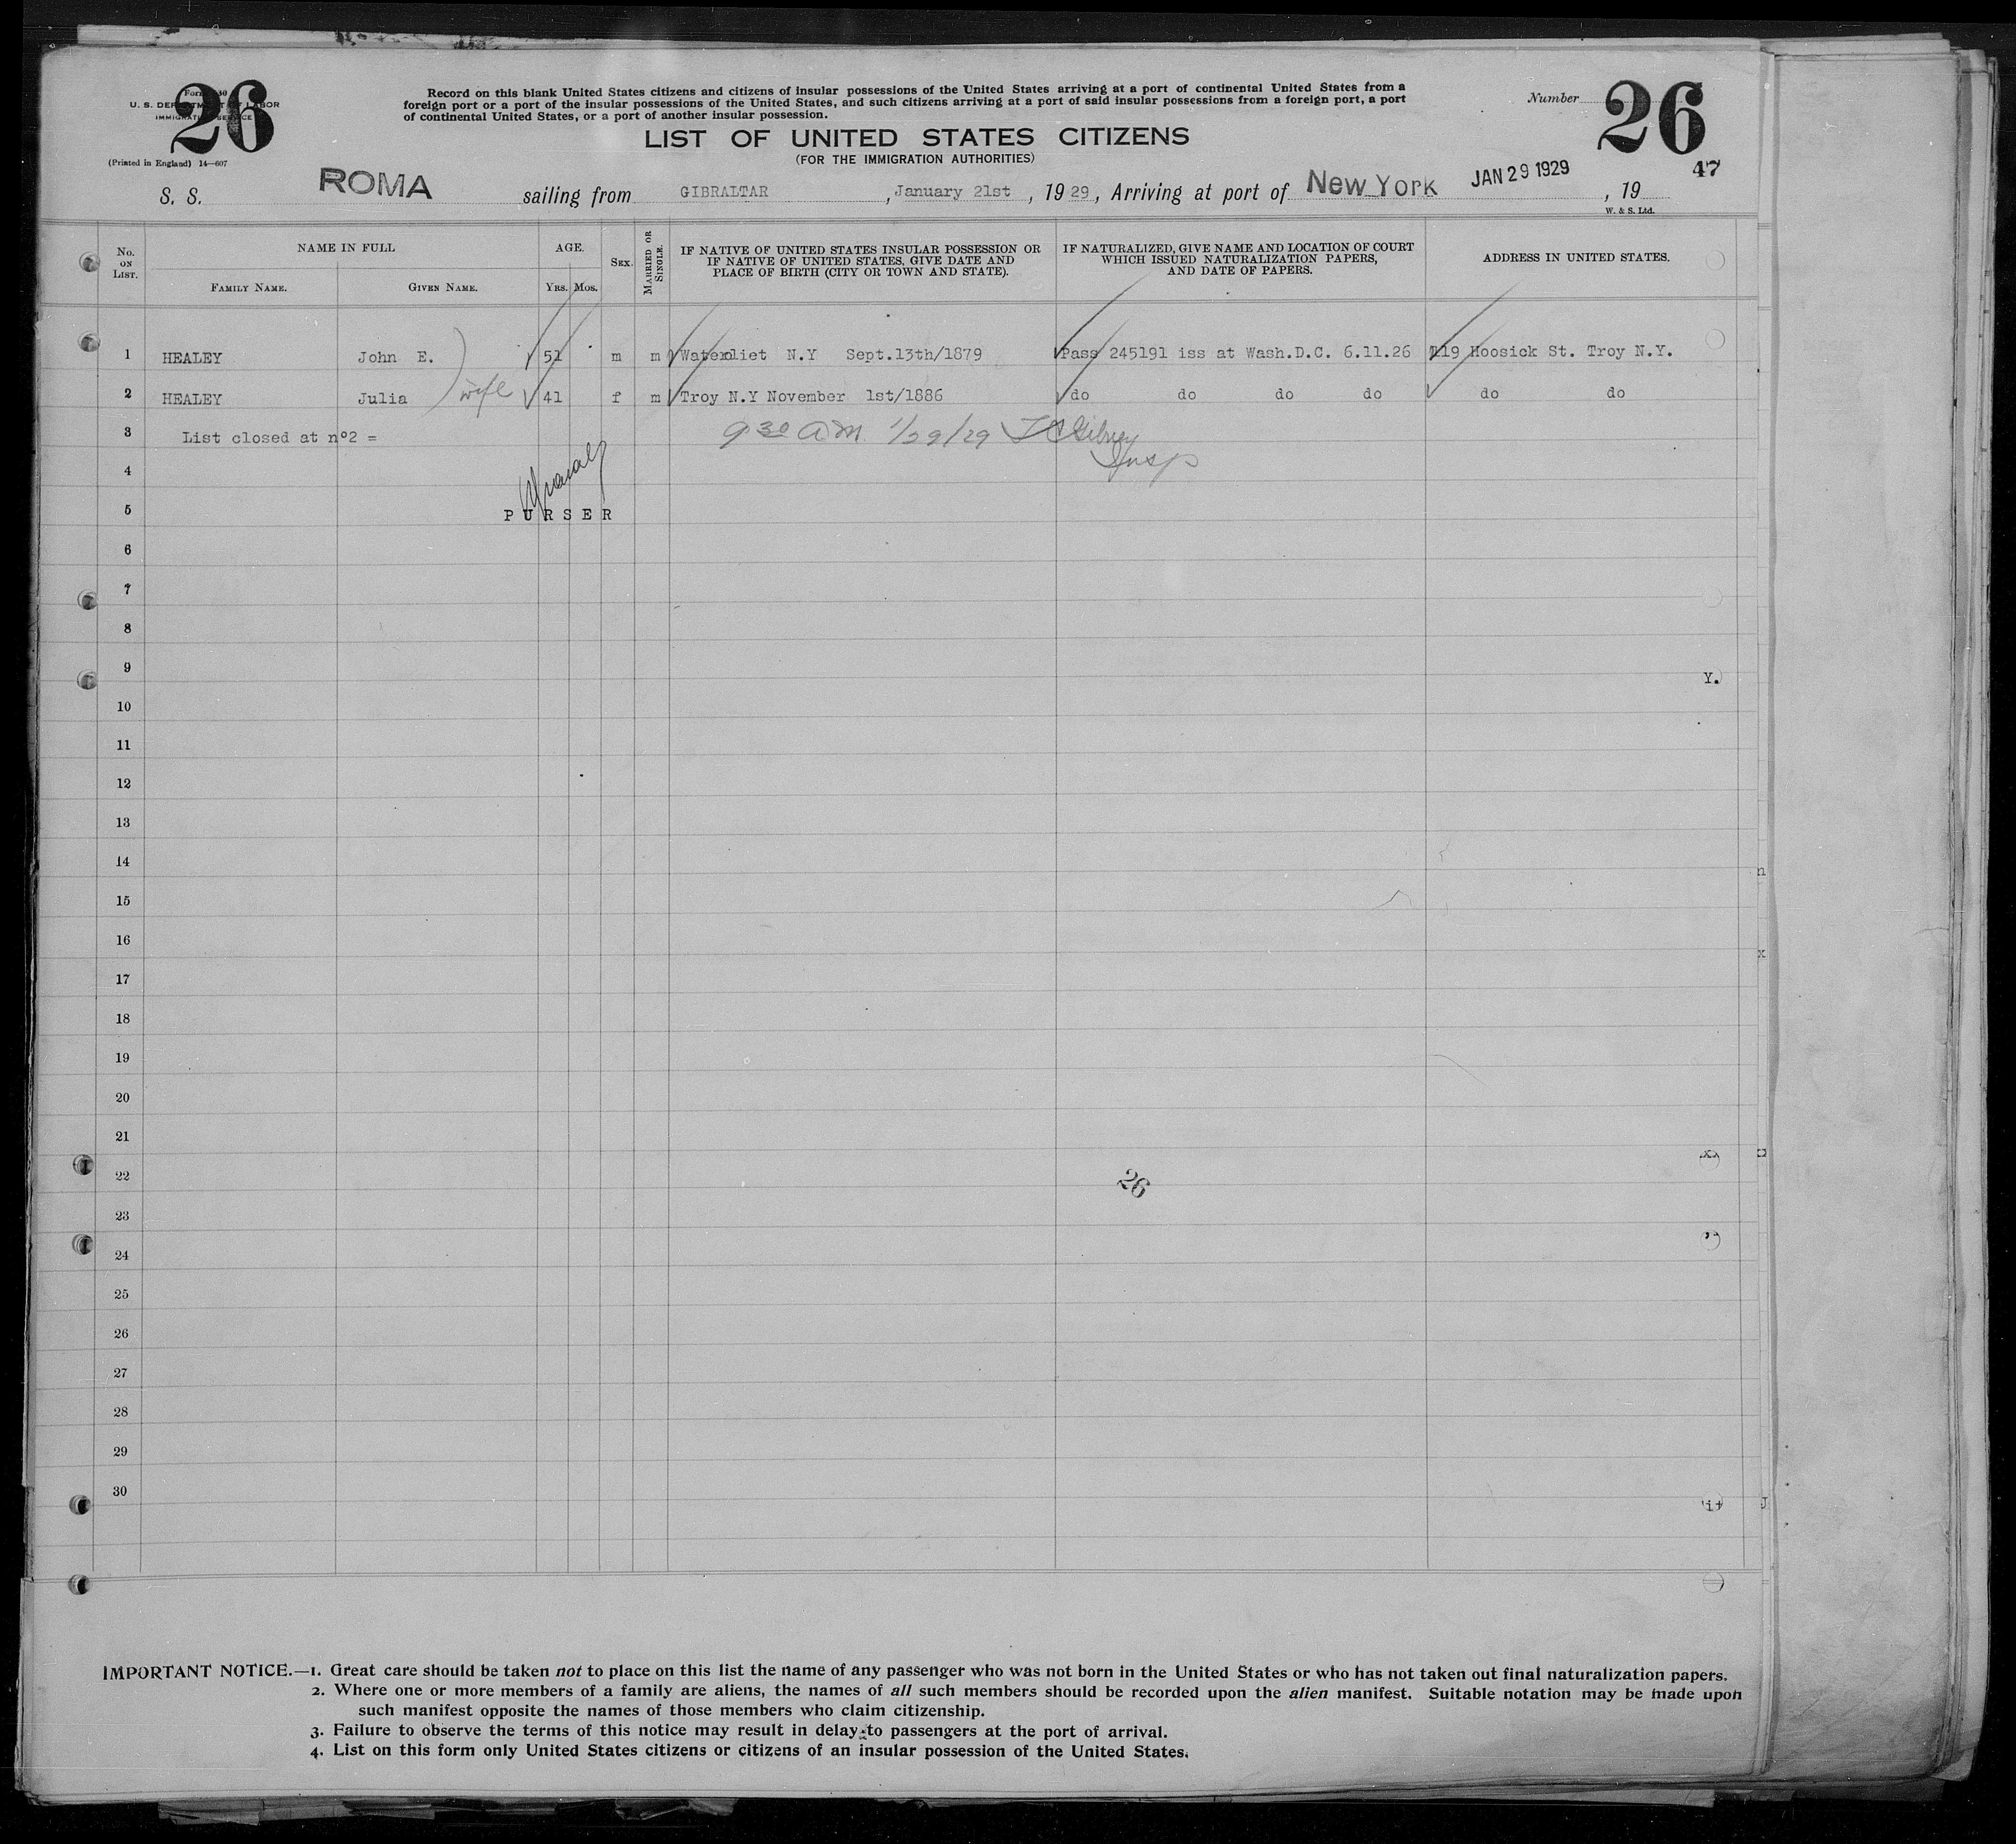 26
U. S. DEPARTMENT OF LABOR
IMMIGRATION SERVICE
(Printed in England) 14—607
Record on this blank United States citizens and citizens of insular possessions of the United States arriving at a port of continental United States from a
foreign port or a port of the insular possessions of the United States, and such citizens arriving at a port of said insular possessions from a foreign port, a port
of continental United States, or a port of another insular possession.
LIST OF UNITED STATES CITIZENS
(FOR THE IMMIGRATION AUTHORITIES)
Number 26
47
S. S. ROMA sailing from GIBRALTAR, January 21st, 19 29, Arriving at port of New York JAN 29 1929, 19
W. & S. Ltd.
No. ON LIST.
NAME IN FULL
FAMILY NAME.
GIVEN NAME.
AGE.
YRS. MOS.
SEX.
MARRIED OR SINGLE.
IF NATIVE OF UNITED STATES INSULAR POSSESSION OR
IF NATIVE OF UNITED STATES, GIVE DATE AND
PLACE OF BIRTH (CITY OR TOWN AND STATE).
IF NATURALIZED, GIVE NAME AND LOCATION OF COURT
WHICH ISSUED NATURALIZATION PAPERS,
AND DATE OF PAPERS.
ADDRESS IN UNITED STATES.
1 HEALEY John E. 51 m m Waterliet N.Y Sept.13th/1879 Pass 245191 iss at Wash.D.C. 6.11.26 119 Hoosick St. Troy N.Y.
2 HEALEY Julia wife 41 f m Troy N.Y November 1st/1886 do do do do do do
3 List closed at nº2 = 9 30 AM 1/29/29
4 Insp
5 PURSER
6
7
8
9
Y.
10
11
12
13
14
15
16
17
18
19
20
21
22
26
23
24
25
26
27
28
29
30
IMPORTANT NOTICE.—1. Great care should be taken not to place on this list the name of any passenger who was not born in the United States or who has not taken out final naturalization papers.
2. Where one or more members of a family are aliens, the names of all such members should be recorded upon the alien manifest. Suitable notation may be made upon
such manifest opposite the names of those members who claim citizenship.
3. Failure to observe the terms of this notice may result in delay to passengers at the port of arrival.
4. List on this form only United States citizens or citizens of an insular possession of the United States.